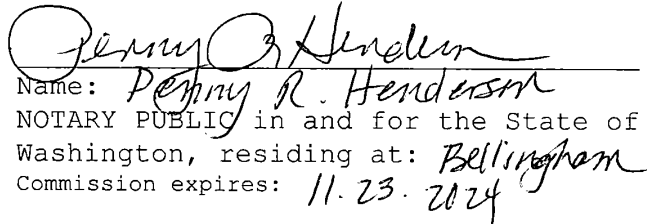 Penny R Henderson
Name: Penny R. Henderson
NOTARY PUBLIC in and for the State of
Washington, residing at: Bellingham
Commission expires: 11.23.2024